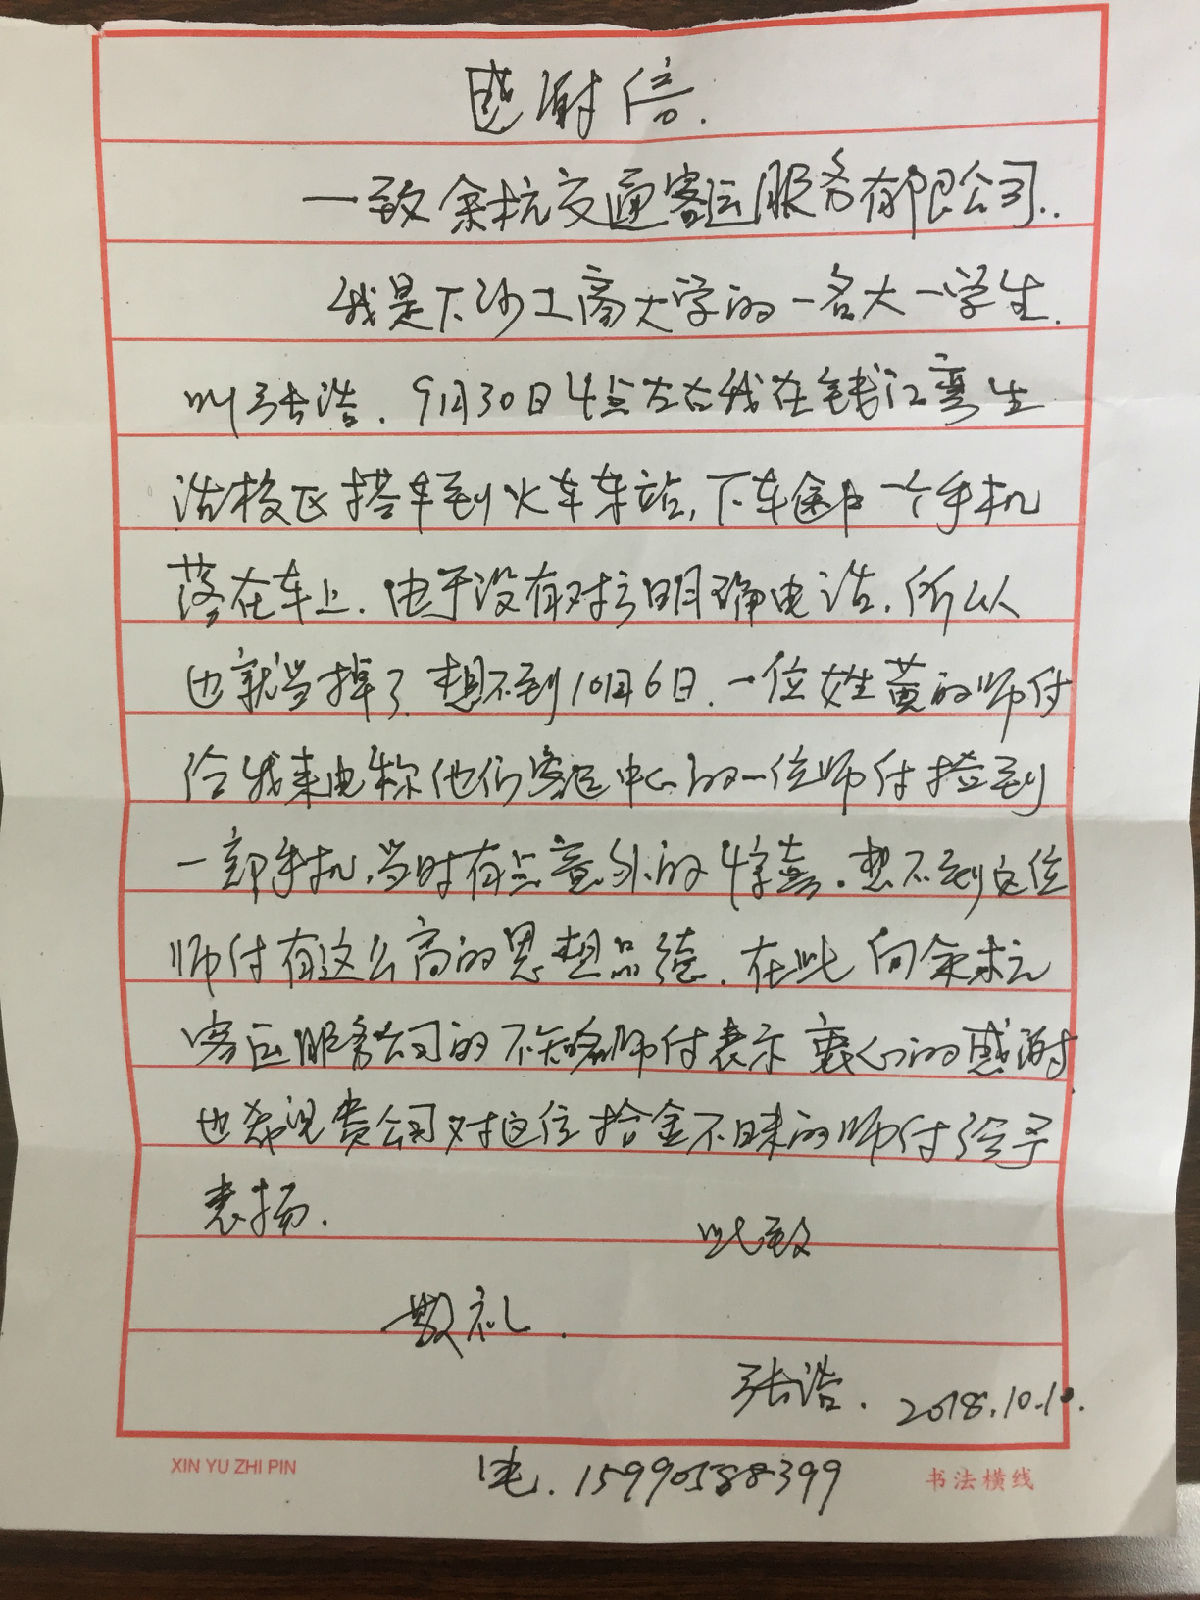 感谢信.
一致余杭交通客运服务有限公司..
我是下沙工商大学的一名大一学生.
叫张浩. 9月30日4点左右我在钱江弯生
活校区搭车到火车东站, 下车途中一个手机
落在车上. 由于没有对方明确电话. 所以
也就当掉了. 想不到10月6日. 一位姓黄的师付
给我来电称他们客运中心的一位师付捡到
一部手机, 当时有点意外的惊喜. 想不到这位
师付有这么高的思想品德. 在此向余杭
客运服务公司的不知名师付表示衷心的感谢.
也希望贵公司对这位拾金不昧的师付给予
表扬.
此致
敬礼.
张浩. 2018.10.10.
电. 15990588399
XIN YU ZHI PIN
书法横线